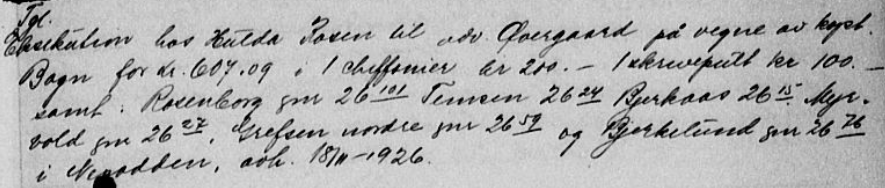 Tgl.
Eksekution hos Hulda Rosen til adv. Overgaard på vegne av kapt.
Bogn for kr. 607.09 i 1 chiffonier kr 200.- 1 skrivepult kr 100.-
samt: Rosenborg gnr 26 101 Temsen 26 24 Bjerkaas 26 15 Myr-
vold gnr 26 27, Grefsen nordre gnr 26 59 og Bjerkelund gnr 26 76
i Nesodden, avh. 18/11-1926.